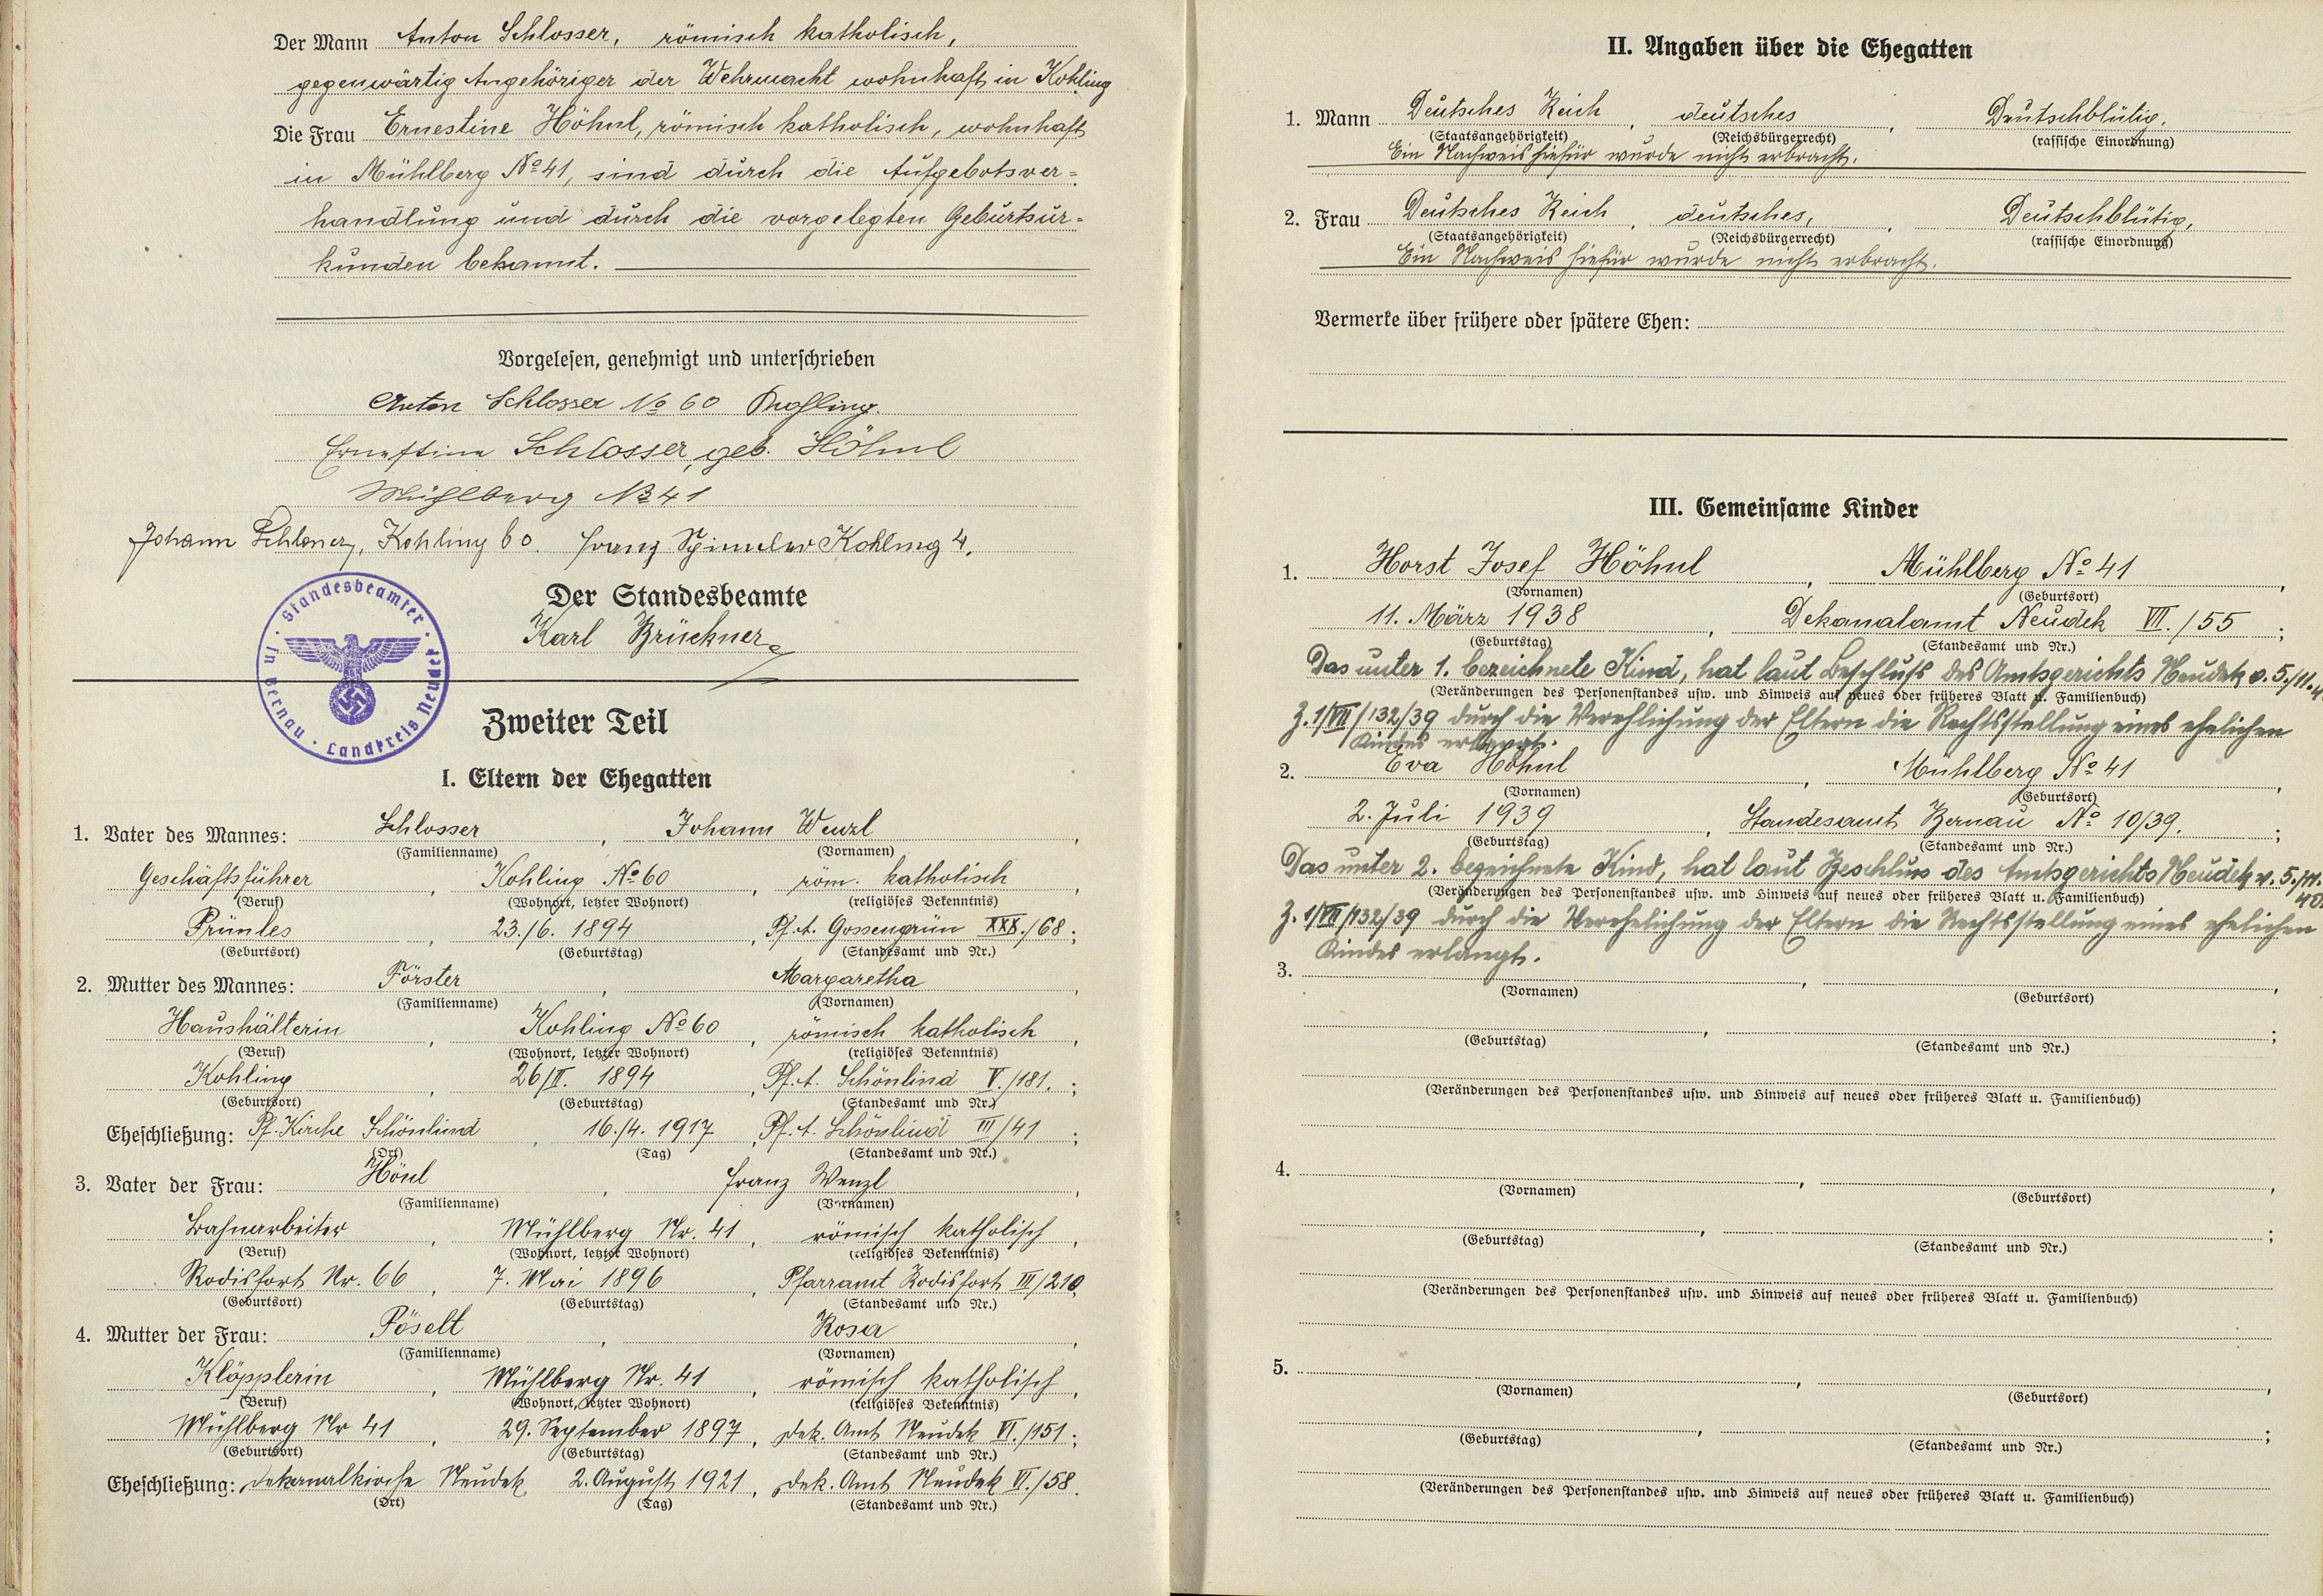 Der Mann Anton Schlosser, römisch katholisch,
gegenwärtig Angehöriger der Wehrmacht wohnhaft in Kohling
Die Frau Ernestine Höhnl, römisch katholisch, wohnhaft
in Mühlberg No 41, sind durch die Aufgebotsver=
handlung und durch die vorgelegten Geburtsur=
kunden bekannt.
Vorgelesen, genehmigt und unterschrieben
Anton Schlosser No 60 Kohling.
Ernestine Schlosser, geb. Höhnl
Mühlberg No 41
Johann Schlosser, Kohling 60. Franz Kohling 4.
Der Standesbeamte
Karl Brückner
Standesbeamter · in Bernau · Landkreis Neudek ·
Zweiter Teil
I. Eltern der Ehegatten
1. Vater des Mannes: Schlosser, Johann Wenzl,
(Familienname) (Vornamen)
Geschäftsführer, Kohling No 60, röm. katholisch,
(Beruf) (Wohnort, letzter Wohnort) (religiöses Bekenntnis)
Prünles, 23./6. 1894, Pf. A. Gossengrün XXX./68;
(Geburtsort) (Geburtstag) (Standesamt und Nr.)
2. Mutter des Mannes: Förster, Margaretha,
(Familienname) (Vornamen)
Haushälterin, Kohling No 60, römisch katholisch,
(Beruf) (Wohnort, letzter Wohnort) (religiöses Bekenntnis)
Kohling, 26/II. 1894, Pf. A. Schönlind V./181.;
(Geburtsort) (Geburtstag) (Standesamt und Nr.)
Eheschließung: Pf. Kirche Schönlind, 16./4. 1917, Pf. A. Schönlind III/41;
(Ort) (Tag) (Standesamt und Nr.)
3. Vater der Frau: Hönl, Franz Wenzl,
(Familienname) (Vornamen)
Bahnarbeiter, Mühlberg Nr. 41, römisch katholisch,
(Beruf) (Wohnort, letzter Wohnort) (religiöses Bekenntnis)
Rodisfort Nr. 66, 7. Mai 1896, Pfarramt Rodisfort III/210;
(Geburtsort) (Geburtstag) (Standesamt und Nr.)
4. Mutter der Frau: Pöselt, Rosa,
(Familienname) (Vornamen)
Klöpplerin, Mühlberg Nr. 41, römisch katholisch,
(Beruf) (Wohnort, letzter Wohnort) (religiöses Bekenntnis)
Mühlberg Nr 41, 29. September 1897, Dek. Amt Neudek VI./151;
(Geburtsort) (Geburtstag) (Standesamt und Nr.)
Eheschließung: Dekanalkirche Neudek, 2. August 1921, Dek. Amt Neudek VI./58.
(Ort) (Tag) (Standesamt und Nr.)
II. Angaben über die Ehegatten
1. Mann Deutsches Reich, deutsches, Deutschblütig,
(Staatsangehörigkeit) (Reichsbürgerrecht) (rassische Einordnung)
Ein Nachweis hiefür wurde nicht erbracht.
2. Frau Deutsches Reich, deutsches, Deutschblütig,
(Staatsangehörigkeit) (Reichsbürgerrecht) (rassische Einordnung)
Ein Nachweis hiefür wurde nicht erbracht.
Vermerke über frühere oder spätere Ehen:
III. Gemeinsame Kinder
1. Horst Josef Höhnl, Mühlberg No 41,
(Vornamen) (Geburtsort)
11. März 1938, Dekanalamt Neudek VII./55;
(Geburtstag) (Standesamt und Nr.)
Das unter 1. bezeichnete Kind, hat laut Beschluß des Amtsgerichts Neudek v. 5./11.
(Veränderungen des Personenstandes usw. und Hinweis auf neues oder früheres Blatt u. Familienbuch)
Z. 1/VII/132/39 durch die Verehlichung der Eltern die Rechtsstellung eines ehelichen
Kindes erlangt.
2. Eva Höhnl, Mühlberg No 41,
(Vornamen) (Geburtsort)
2. Juli 1939, Standesamt Bernau No 10/39.;
(Geburtstag) (Standesamt und Nr.)
Das unter 2. bezeichnete Kind, hat laut Beschluss des Amtsgerichts Neudek v. 5./11. 40.
(Veränderungen des Personenstandes usw. und Hinweis auf neues oder früheres Blatt u. Familienbuch)
Z. 1/VII/132/39 durch die Verehelichung der Eltern die Rechtsstellung eines ehelichen
Kindes erlangt.
3.
(Vornamen) (Geburtsort)
(Geburtstag) (Standesamt und Nr.)
(Veränderungen des Personenstandes usw. und Hinweis auf neues oder früheres Blatt u. Familienbuch)
4.
(Vornamen) (Geburtsort)
(Geburtstag) (Standesamt und Nr.)
(Veränderungen des Personenstandes usw. und Hinweis auf neues oder früheres Blatt u. Familienbuch)
5.
(Vornamen) (Geburtsort)
(Geburtstag) (Standesamt und Nr.)
(Veränderungen des Personenstandes usw. und Hinweis auf neues oder früheres Blatt u. Familienbuch)